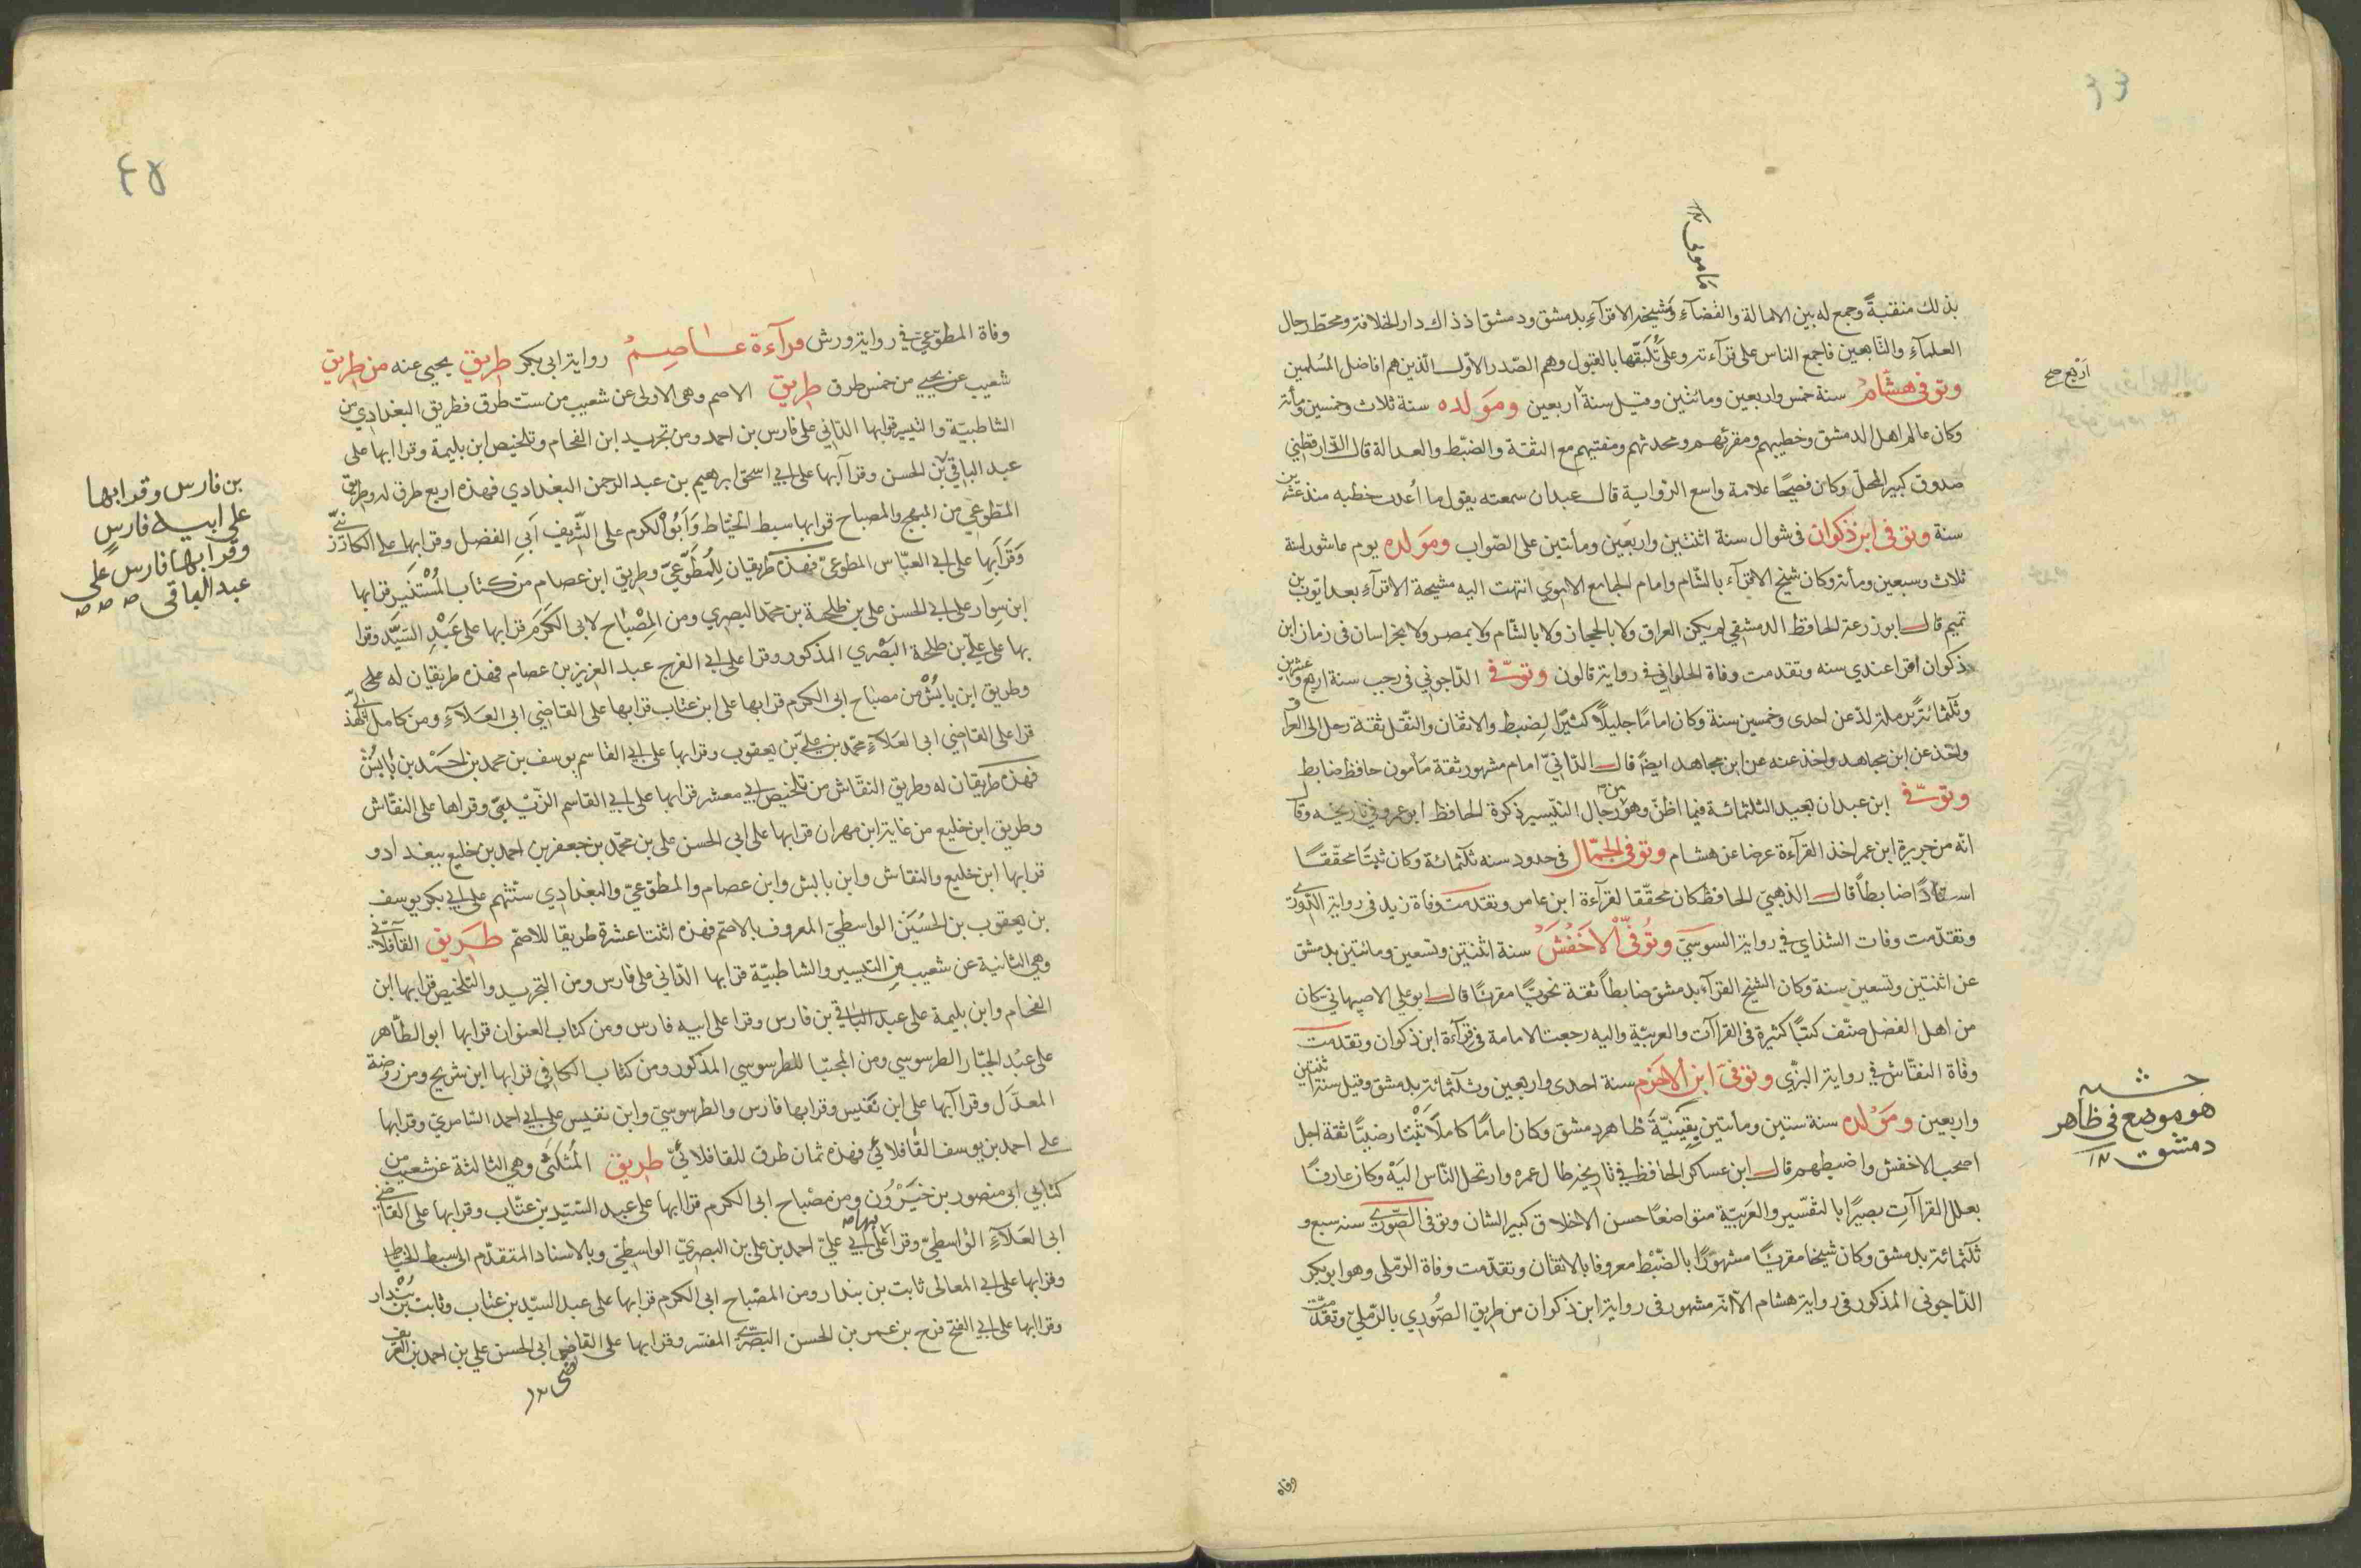 ٣٣
ماموني ١٢
بذلك منقبةً وجمع له بين الامالة والقضآء ومشيخة الاقرآء بدمشق ودمشق اذ ذاك دار الخلافة ومحط رجال
العلمآء والتابعين فاجمع الناس على قرآءته وعلى تلقيها بالقبول وهم الصّدر الاوّل الّذين هم افاضل المُسلمين
وتوفى هشامُ سنة خمس واربعين ومائتين وقيل سنة اربعين ومَولده سنة ثلاث وخمسين ومأة
اربع صح
وكان عالم اهل الدمشق وخطيبهم ومقرئهم ومحدثهم ومفتيهم مع الثقة والضبط والعدالة قال الدّارقطني
صدوق كبير المحلّ وكان فصيحًا علامة واسع الرّواية قال عبدان سمعته يقول ما أعدت خطبه منذ عشرين
سنة وتوفى ابن ذكوان فى شوال سنة اثنتين واربعين ومأتين على الصّواب ومَولده يوم عاشورا سنة
ثلاث وسبعين ومأة وكان شيخ الاقرآء بالشّام وامام الجامع الاموي انتهت اليه مشيخة الاقرآء بعد ايّوب بن
تميم قال ابو زرعة الحافظ الدمشقي لم يكن العراق ولا بالحجاز ولا بالشّام ولا بمصر ولا بخراسان فى زمان ابن
ذكوان اقرا عندي سنه وتقدمت وفاة الحلواني فى رواية قالون وتوفّى الدّاجوني فى رجب سنة اربع وعشرين
وثلثمائة برملة لدّ عن احدى وخمسين سنة وكان امامًا جليلًا كثيرًا لضبط والاتقان والنّقل ثقة رحل الى العراق
واخذ عن ابن مجاهد واخذ عنه عن ابن مجاهد ايضًا قال الدّانيّ امام مشهور ثقة مأمون حافظ ضابط
وتوفّى ابن عبدان بعيد الثلثمائة فيما اظنّ وهو من رجال التّيسير ذكرة الحافظ ابو عمرو فى تاريخه وقال
انّه من جزيرة ابن عمر اخذ القرآءة عرضا عن هشام وتوفى الجمّال فى حدود سنه ثلثمائة وكان ثبتًا محقّقًا
استاذًا ضابطًا قال الذهبيّ الحافظ كان محقّقا لقرآءة ابن عامر وتقدمت وفاة زيد فى رواية الدّوري
وتقدّمت وفات الشذاي فى رواية السوسيّ وتُوفّى الاَخفَش سنة اثنتين وتسعين ومائتين بدمشق
عن اثنتين وتسعين سنة وكان الشيخ القرآء بدمشق ضابطًا ثقة نحويًّا مقرئًا قال ابو على الاصبهاني كان
من اهل الفضل صنّف كتبًا كثيرة فى القراآت والعربيّة واليه رجعت الامامة فى قرآءة ابن ذكوان وتقدمت
وفاة النقّاش فى رواية البزّي وتوفى ابن الاخرم سنة احدى واربعين وثلثمائة بدمشق وقيل سنة اثنتين
واربعين ومَوْلده سنة ستين ومأتين بقينيّة ظاهر دمشق وكان امامًا كاملًا ثَبْتا رضيًّا ثقة اجل
حشيه
هو موضع فى ظاهر
دمشق ١٢
اصحب الاخفش واضبطهم قال ابن عساكر الحافظ فى تاريخه طال عمره وارتحل النّاس اليَه وكان عارفًا
بعلل القراآت بصيرًا بالتفسير والعَربيّة متواضعًا حسن الاخلاق كبير الشان وتوفى الصّوري سنه سبع و
ثلثمائة بدمشق وكان شيخا مقريًا مشهورًا بالضّبْط معروفا بالاتقان وتقدّمت وفاة الرّملى وهو ابو بكر
الدّاجوني المذكور فى رواية هشام الّا انّه مشهور فى رواية ابن ذكوان من طريق الصُّوري بالرّملىّ وتقدّمت
وفاة
٤٥
وفاة المطوّعيّ فى رواية ورش قرآءة عاصِمُ رواية ابى بكر طريق يحيى عنه من طريق
شعيب عن يحيي من خمس طرق طريق الاصم وهى الاولى عن شعيب من ستّ طرق فطريق البغدادي من
الشاطبيّة والتيسير قرا بها الدّاني على فارس بن احمد ومن تجريد ابن الفحام وتلخيص ابن بليمة وقرا ابها على
عبد الباقي بن الحسن وقرا آبها على ابي اسحق ابرهيم بن عبد الرحمن البغدادي فهذه اربع طرق له وطريق
بن فارس وقرا بها
على ابيه فارس
وقرا بها فارس على
عبد الباقى صه صه صه
المطوّعي من المبهج والمصباح قرا بها سبط الخيّاط وَاَبُو الكرم على الشّريف اَبى الفضل وقرا بها على الكارزيني
وَقَرَا بها على ابى العبّاس المطوعيّ فهذه طريقان لِلمُطَّوّعيّ وطريق ابن عصام من كتاب المُسْتنير قرا بها
ابن سِوار على ابى الحسن على بن طلحة بن محمّد البصري ومن المِصْبَاح لابى الكَرَم قرا بها على عَبْدِ السَيّد وقرا
بها على عليّ بن طلحة البَصْري المذكور وقرا على ابى الفرج عبد العزيز بن عصام فهذه طريقان له على
وطريق ابن بابُشْ من مصباح ابى الكرم قرا بها على ابن عتاب قرا بها على القاضي ابى العَلآءِ ومن كامل الهذلّي
قرا على القاضي ابى العَلآءِ محمّد بن عليّ بن يعقوب وقرا بها على ابى القاسم يوسف بن محمد بن احمَد بن بابُش
فهذه طريقان له وطريق النقّاش من تلخيص ابي معشر قرا بها على ابى القاسم الزّيْديّ وقراها على النقّاش
وطريق ابن خليع من غاية ابن مهران قرا بها على ابى الحسن على بن محمّد بن جعفر بن احمد بن خليع ببغداد و
قرا بها ابن خليع والنقاش وابن بابش وابن عصام والمطوّعيّ والبغدادي ستّتهم على ابى بكر يوسف
بن يعقوب بن الحُسَين الواسطيّ المعروف بالاصمّ فهذه اثنتا عشرة طريقا للاصمّ طريق القافلآئيّ
وهي الثانية عن شعيب من التيسير والشاطبيّة قرا بها الدّاني على فارس ومن التجريد والتلخيص قرا بها ابن
الفحّام وابن بليمة على عبد الباقي بن فارس وقرا على ابيه فارس ومن كتاب العنوان قرا بها ابو الطّاهر
على عبْد الجبّار الطرسوسي ومن المجتبا للطرسوسي المذكور ومن كتاب الكافى قرا بها ابن شريح ومن روضة
المعدّل وقرا آبها على ابن نفيس وقرا بها فارس والطرسوسيّ وابن نفيس على ابى احمد السّامريّ وقرا بها
على احمد بن يوسف القافلائي فهذه ثمان طرق للقافلائيّ طريق المُثَلثىّ وهي الثالثة عن شعيب من
كتابي ابى منصور بن خَيْرُون ومن مصْباح ابى الكرم قرا ابها على عبد السّيّد بن عتّاب وقرا بها على القاضي
ابى العَلآءِ الوْاسطيّ وقرا بها على ابى عليّ احمد بن على بن البصريّ الواسطيّ وبالاسناد المتقدّم الى سبط الخيّاط
وقرا بها على ابى المعالى ثابت بن بندار ومن المصْباح ابى الكرم قرا بها على عبد السيّد بن عتّاب وثابت بن بُنْدار
وقرا بها على ابى الفتح فرج بن عمر بن الحسن البَصْرّي المفسّر وقرا بها على القاضى ابى الحسن على بن احمد بن العريف